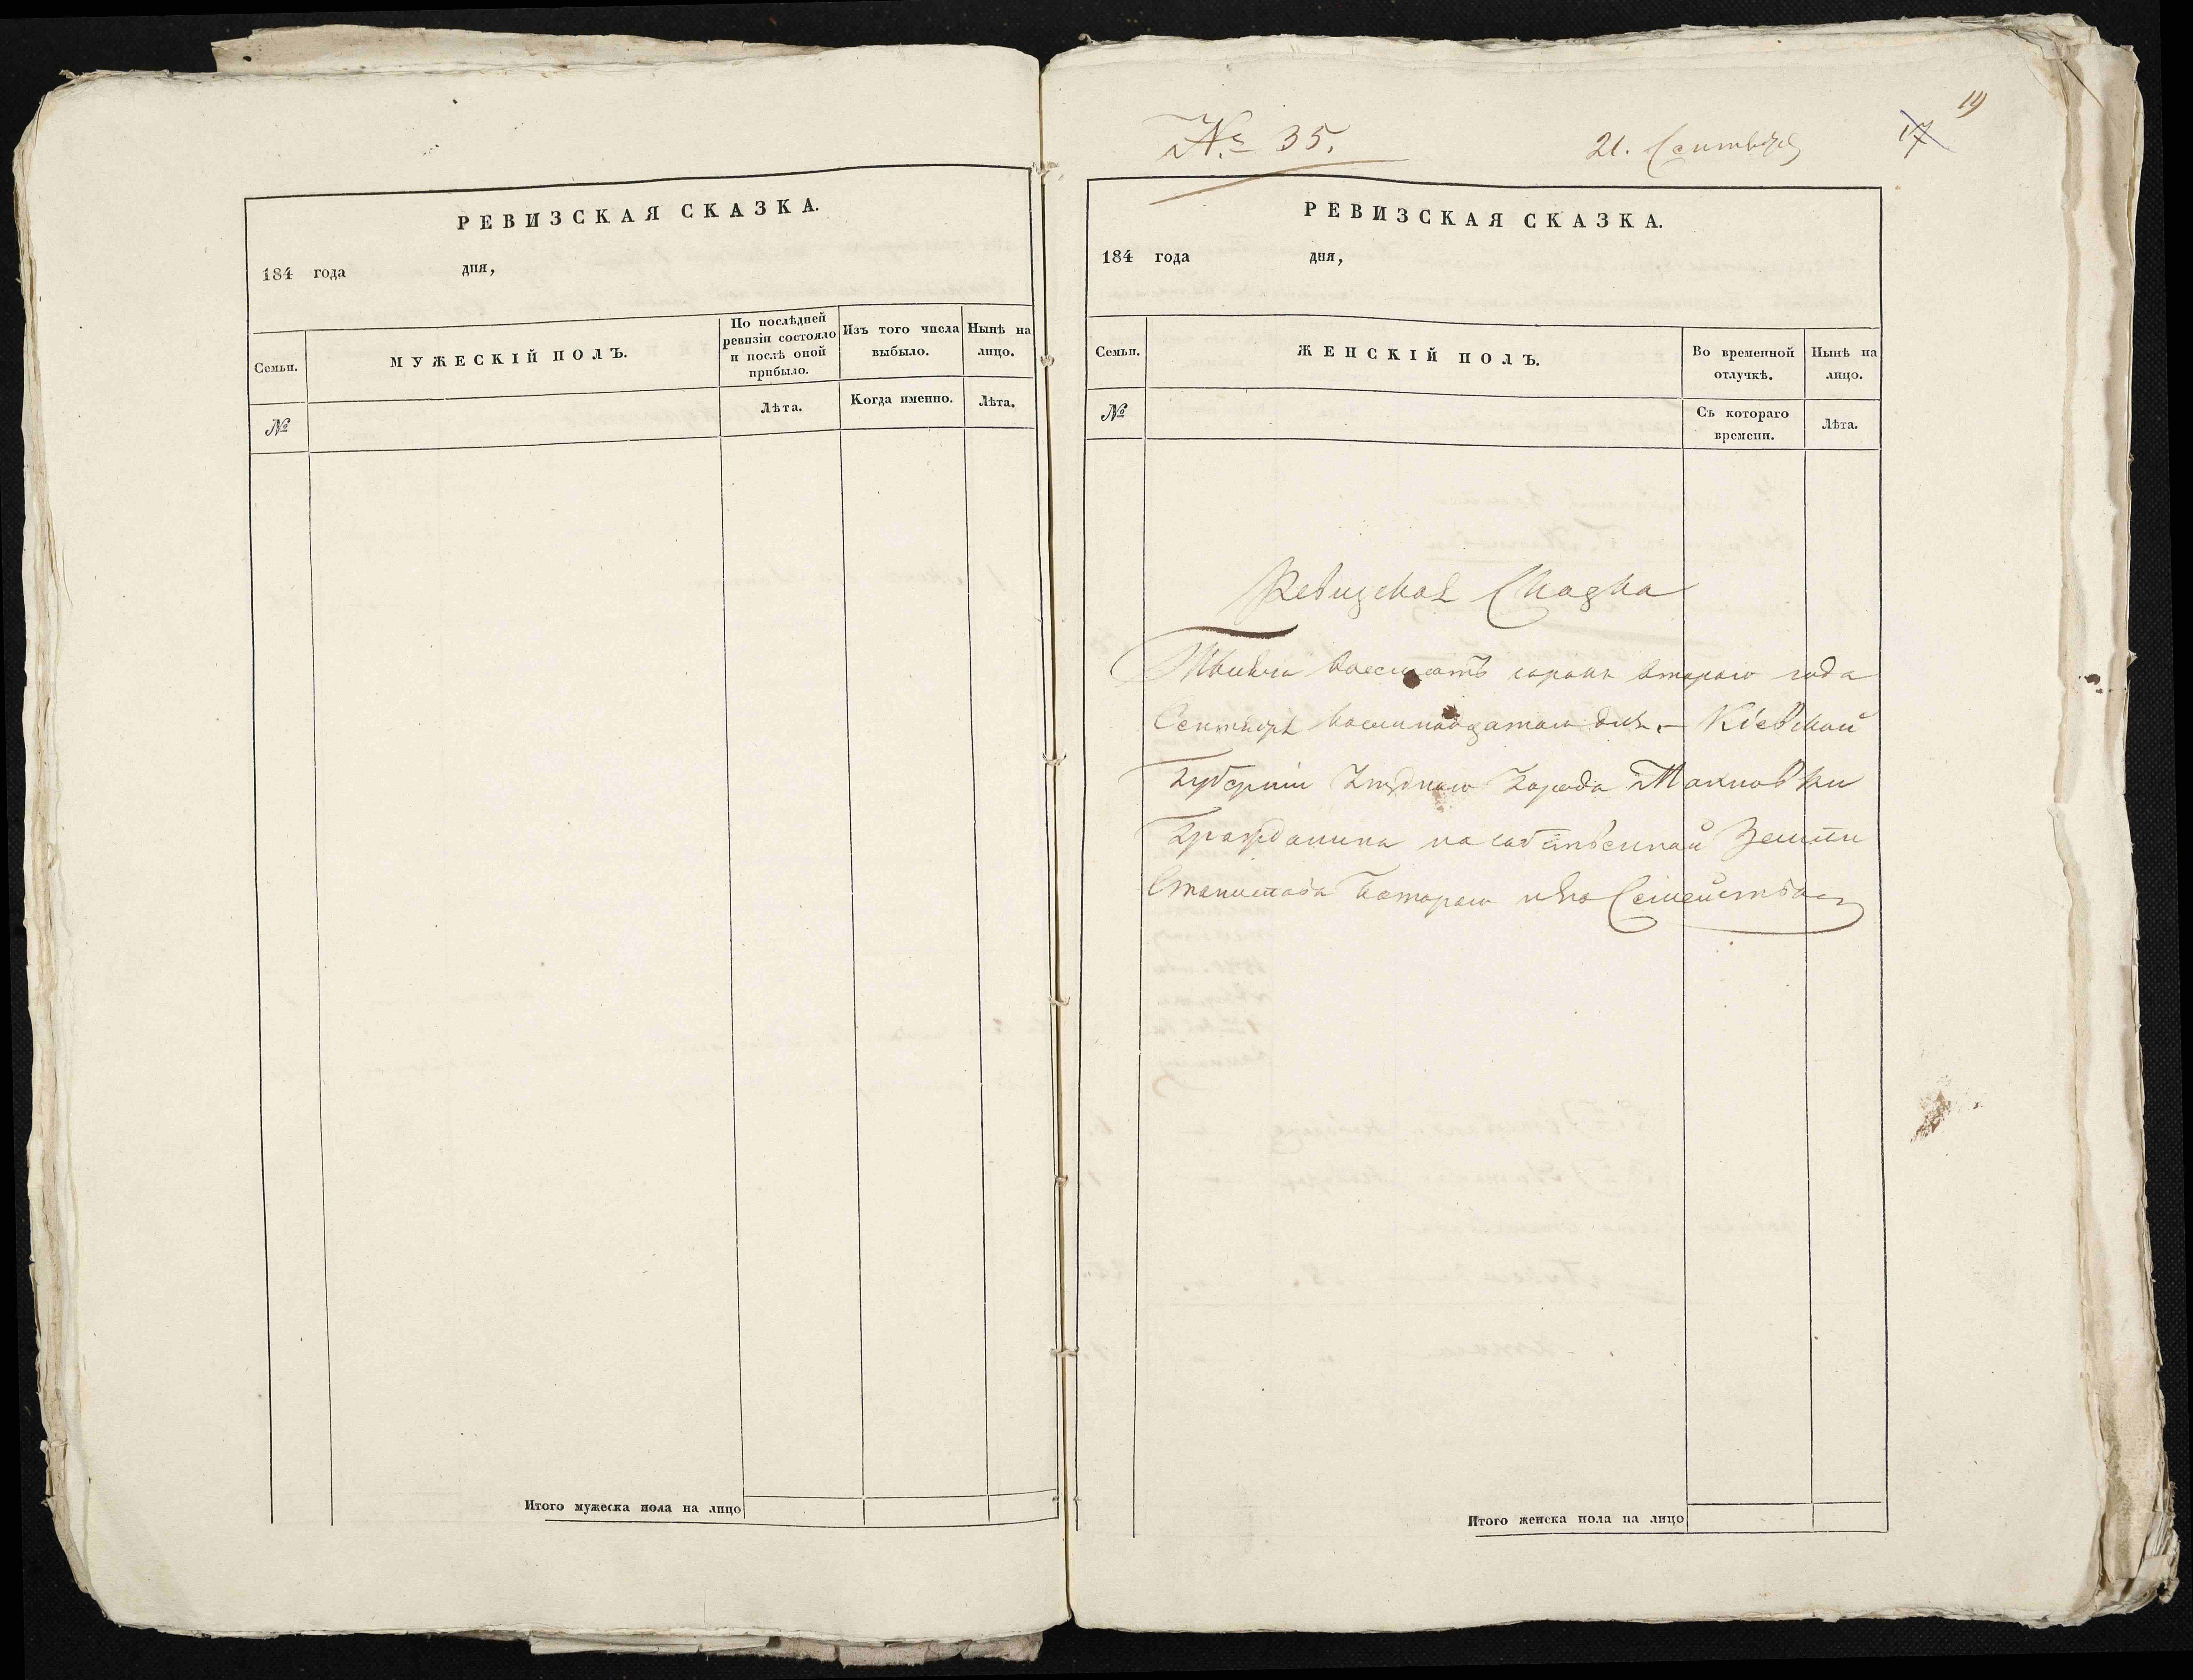 РЕВИЗСКАЯ СКАЗКА.
184 года дня,
Семьи.
МУЖЕСКІЙ ПОЛЪ.
По послѣдней ревизіи состояло и послѣ оной прибыло.
Изъ того числа выбыло.
Нынѣ на лицо.
№
Лѣта.
Когда именно.
Лѣта.
Итого мужеска пола на лицо
19
17
№ 35.
21. Сентября
РЕВИЗСКАЯ СКАЗКА.
184 года дня,
Семьи.
ЖЕНСКІЙ ПОЛЪ.
Во временной отлучкѣ.
Нынѣ на лицо.
№
Съ котораго времени.
Лѣта.
Ревизская Сказка
Тысяча восемьсотъ сорокъ втораго года
Сентября восемнадцатаго дня. – Кіевской
Губерніи Города Махновки
Гражданина на собственной Земли
Станислава Семейства
Итого женска пола на лицо